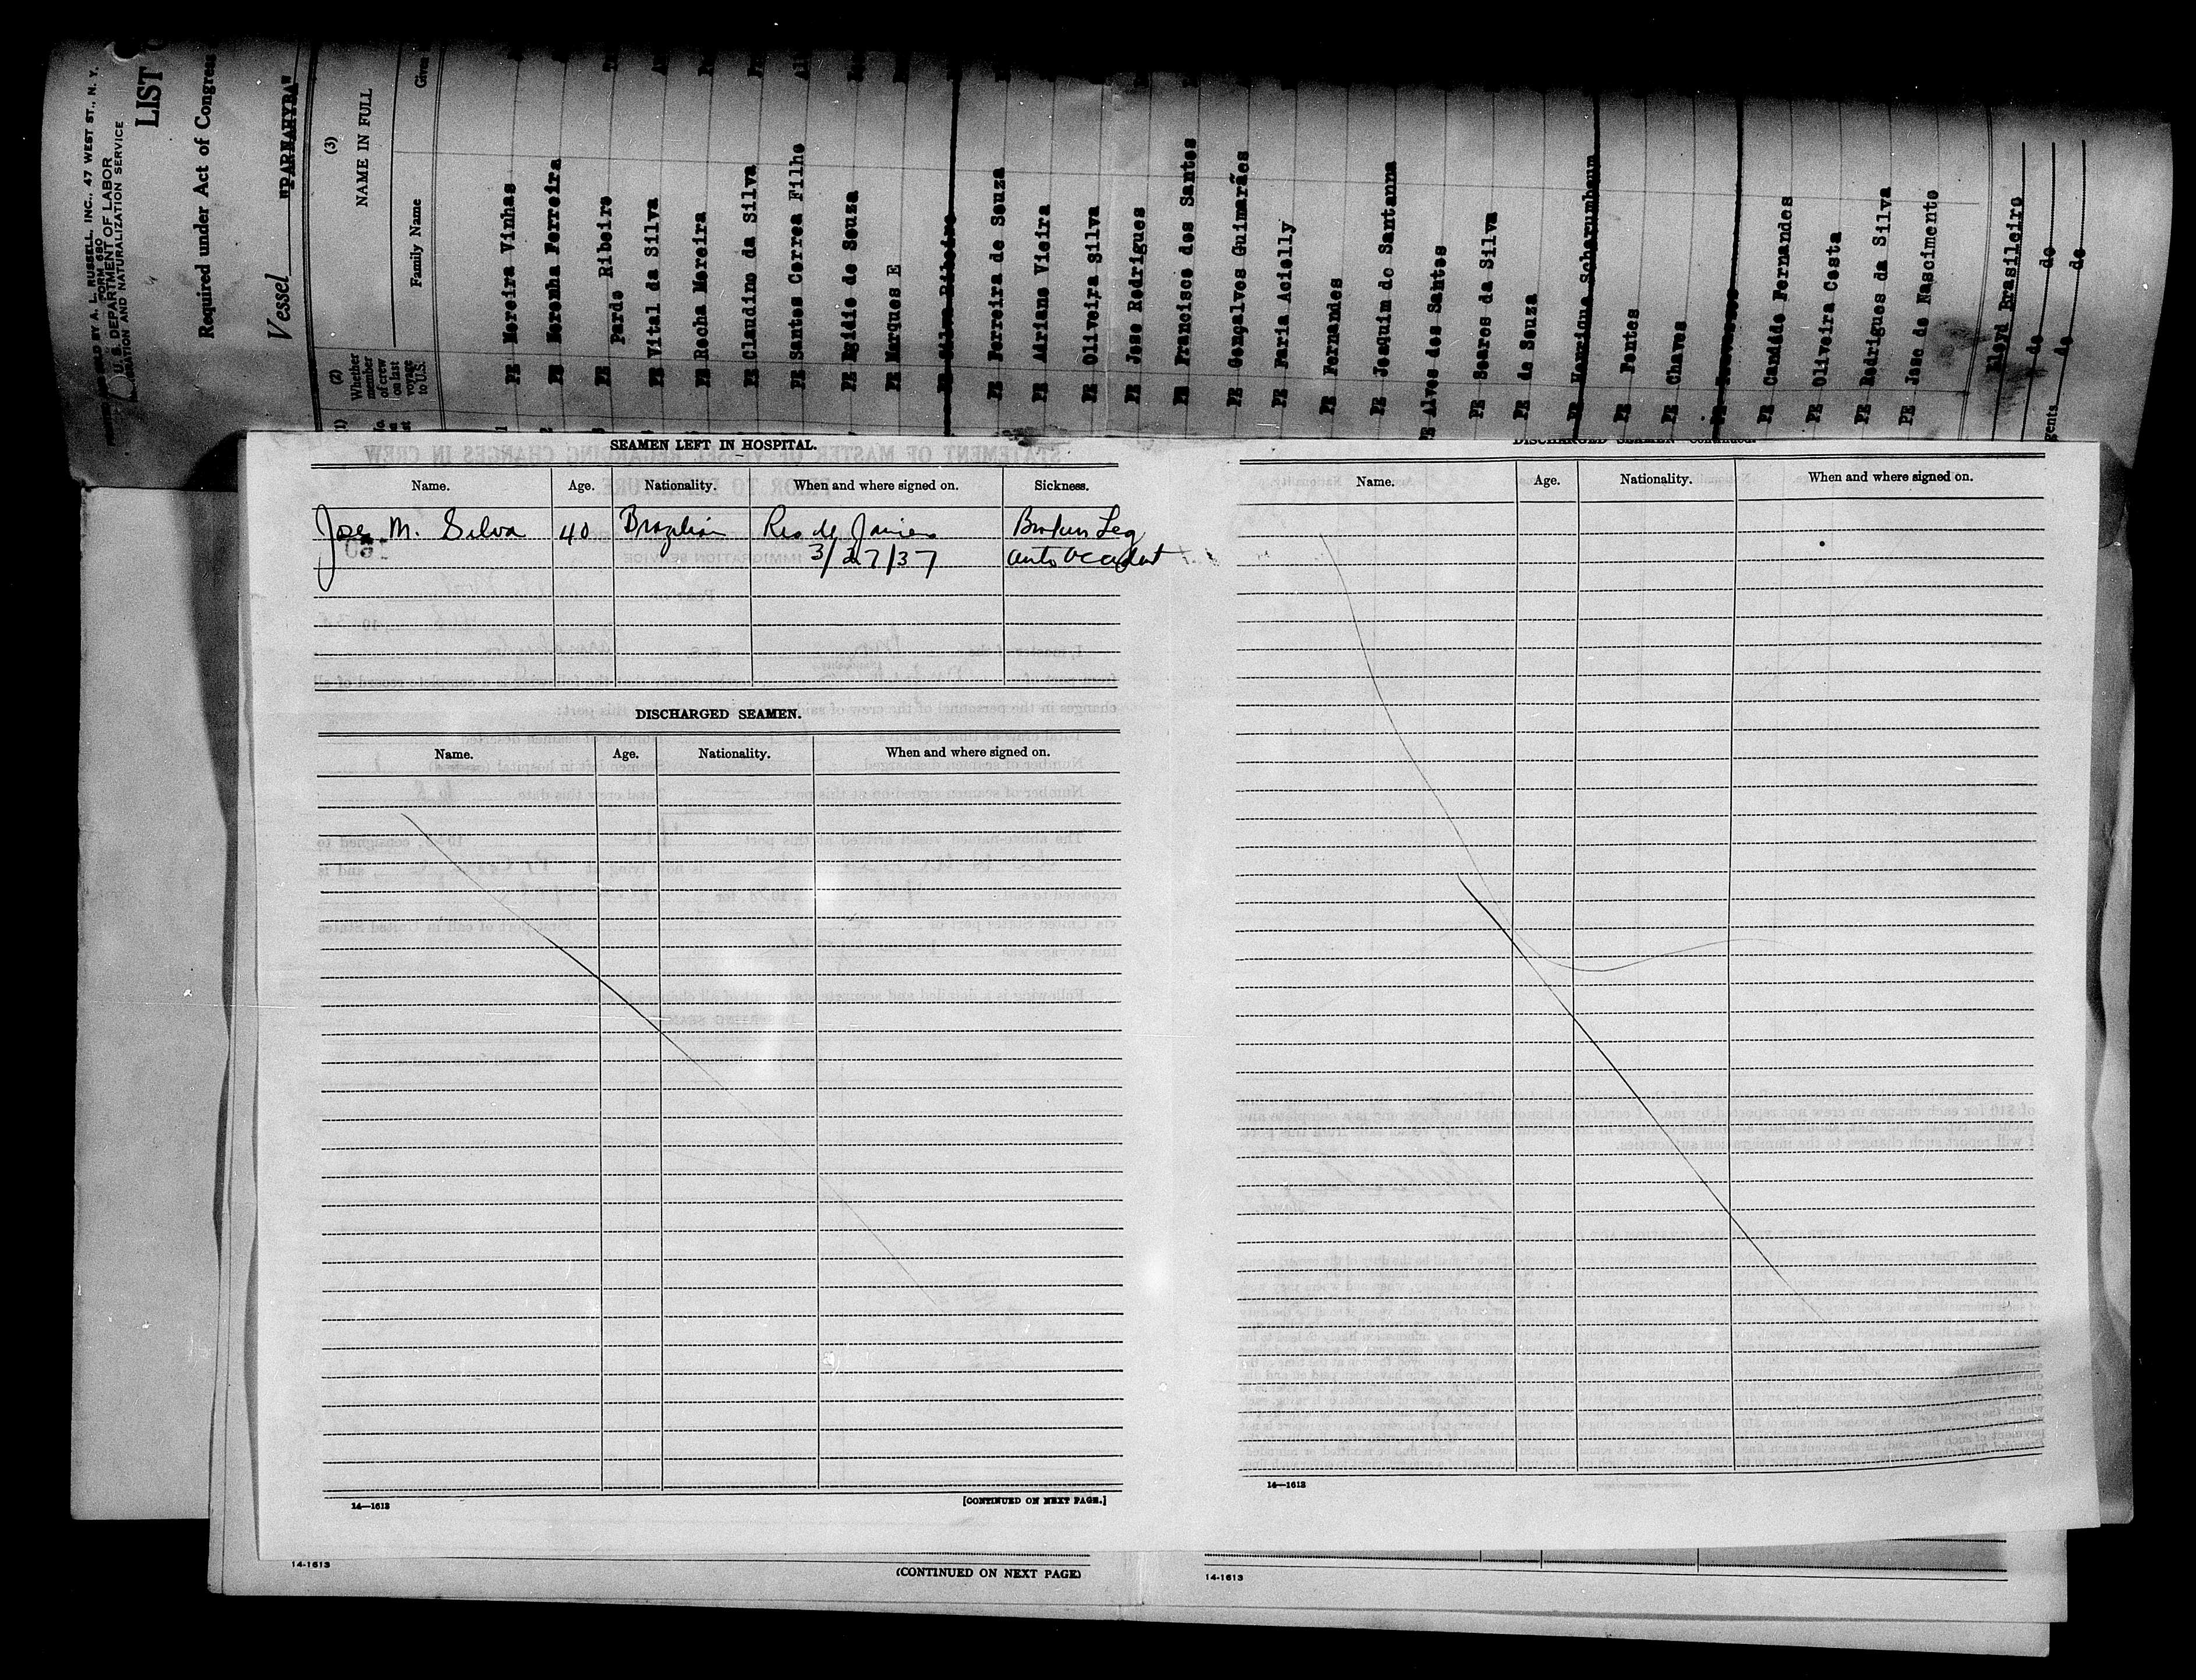 47 WEST ST., N. Y.
FORM 680
U. S. DEPARTMENT OF LABOR
IMMIGRATION AND NATURALIZATION SERVICE
LIST
Required under Act of Congress
Vessel "PARNAHYBA"
(2)
Whether member of crew on last voyage to U.S.
(3)
NAME IN FULL
Family Name
Given
PE Moreira Vinhas
PE Noronha Ferreira
PE Pardo Ribeiro
PE Vital da Silva
PE Rocha Moreira
PE Claudino da Silva
PE Santos Correa Filho
PE Egidio de Souza
PE Marques E
PE Silva Ribeiro
PE Ferreira de Souza
PE Adriano Vieira
PE Oliveira Silva
PE Jose Rodrigues
PE Francisco dos Santos
PE Gonçalves Guimarães
PE Faria Acielly
PE Fernandes
PE Joaquim de Santanna
PE Alves dos Santos
PE Soares da Silva
PE de Souza
PE Henrique Scharumbaum
PE Fontes
PE Chaves
PE
PE Candido Fernandes
PE Oliveira Costa
PE Rodrigues da Silva
PE Jose do Nascimento
Lloyd Brasileiro
do do
do do
SEAMEN LEFT IN HOSPITAL.
Name. Age. Nationality. When and where signed on. Sickness.
Jose M. Silva 40 Brazilian Rio de Janiero Broken Leg
3/27/37 auto accident
DISCHARGED SEAMEN.
Name. Age. Nationality. When and where signed on.
14—1613
[CONTINUED ON NEXT PAGE.]
14-1613
(CONTINUED ON NEXT PAGE)
DISCHARGED SEAMEN—Continued.
Name. Age. Nationality. When and where signed on.
14—1613
14-1613